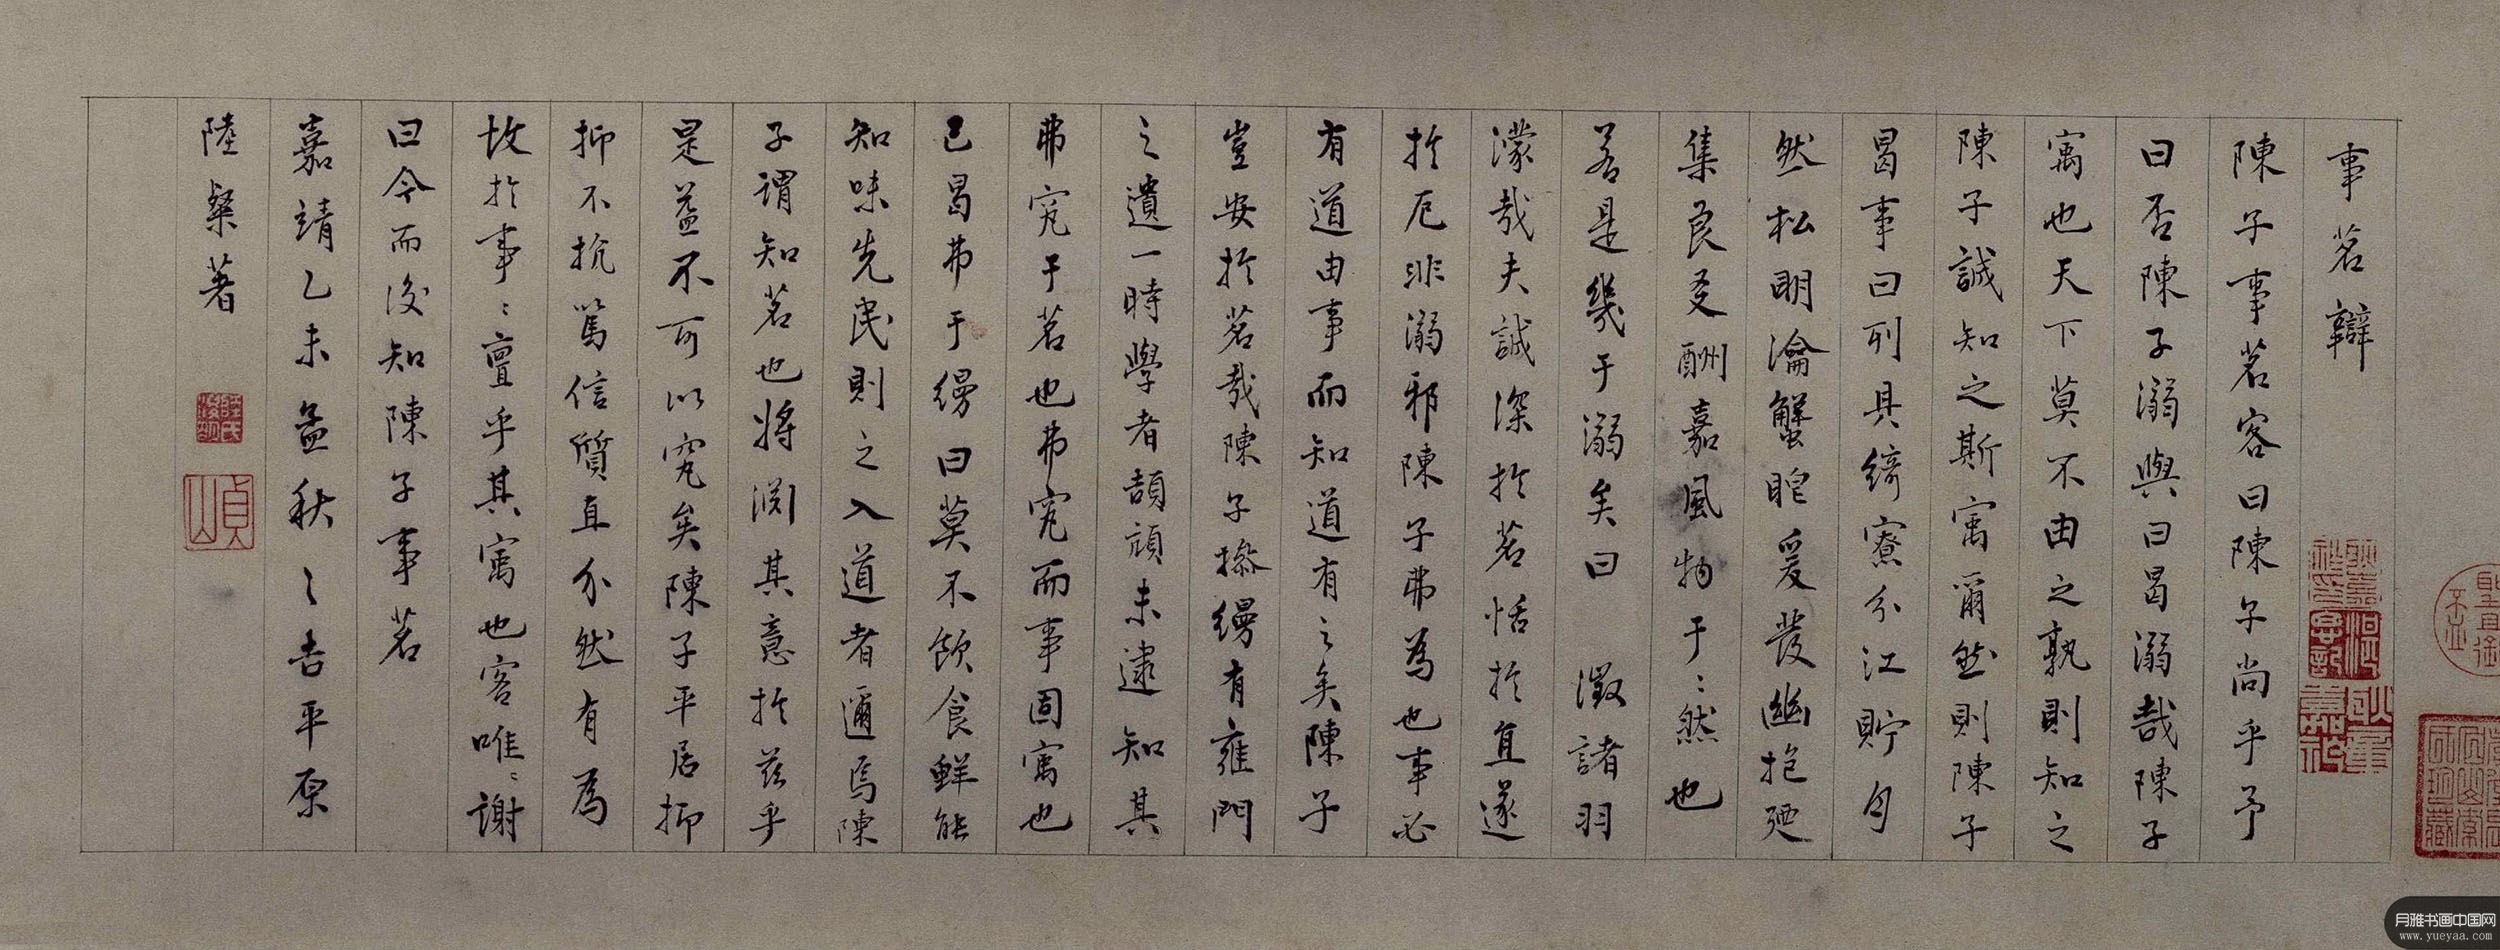 事茗辯
陳子事茗客曰陳子尚乎予
曰否陳子溺與曰曷溺哉陳子
寓也天下莫不由之孰則知之
陳子誠知之斯寓爾然則陳子
曷事曰列具綺寮分江貯月
然松明瀹蟹眼爰發幽抱迺
集良友酬嘉風物于﹕然也
若是幾于溺矣曰 澂諸羽
濛哉夫誠深於茗恬於真遂
於卮非溺邪陳子弗為也事必
有道由事而知道有之矣陳子
豈安於茗哉陳子操縵有雍門
之遺一時學者頡頏未逮知其
弗究于茗也弗究而事固寓也
已曷弗于縵曰莫不飲食鮮能
知味先民則之入道者邇焉陳
子謂知茗也將淵其意於茲乎
是益不可以究矣陳子平居抑
抑不抗篤信質直介然有為
故於事﹕亶乎其寓也客唯﹕謝
曰今而後知陳子事茗
嘉靖乙未孟秋之吉平原
陸粲著
陸氏
貞山
月雅书画中国网
www.yueyaa.com